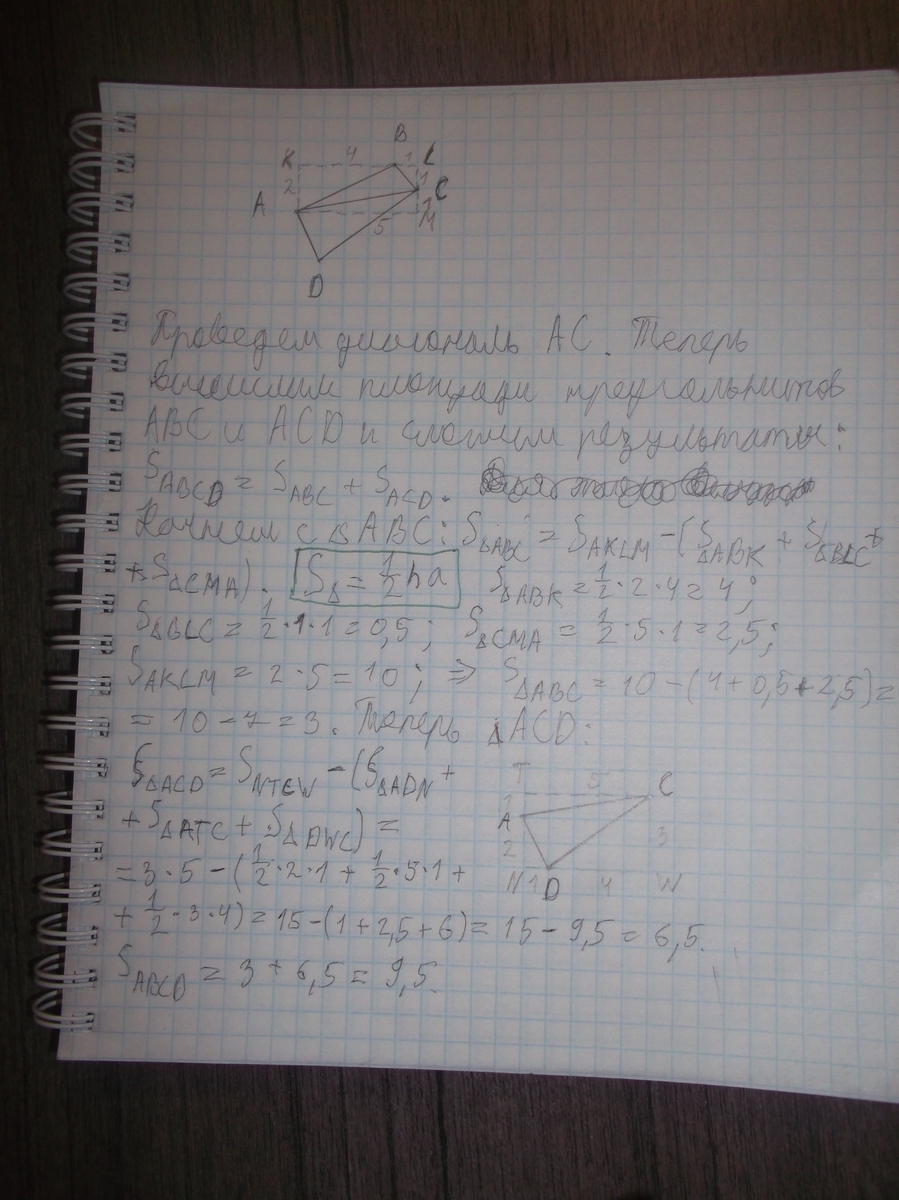 B
K 4 1 L
2 1 C
A 1
5 M
D
Проведем диагональ AC. Теперь
вычислим площади треугольников
ABC и ACD и сложим результаты:
S_ABCD = S_ABC + S_ACD.
Начнем с ΔABC: S_ΔABC = S_AKLM - (S_ΔABK + S_ΔBLC +
+ S_ΔCMA). S_Δ = 1/2 ha S_ΔABK = 1/2 · 2 · 4 = 4;
S_ΔBLC = 1/2 · 1 · 1 = 0,5; S_ΔCMA = 1/2 · 5 · 1 = 2,5;
S_AKLM = 2 · 5 = 10; ⇒ S_ΔABC = 10 - (4 + 0,5 + 2,5) =
= 10 - 7 = 3. Теперь ΔACD:
S_ΔACD = S_NTCW - (S_ΔADN +
+ S_ΔATC + S_ΔDWC) =
= 3 · 5 - (1/2 · 2 · 1 + 1/2 · 5 · 1 +
+ 1/2 · 3 · 4) = 15 - (1 + 2,5 + 6) = 15 - 9,5 = 6,5.
S_ABCD = 3 + 6,5 = 9,5.
T 5 C
1
A
2 3
N 1 D 4 W